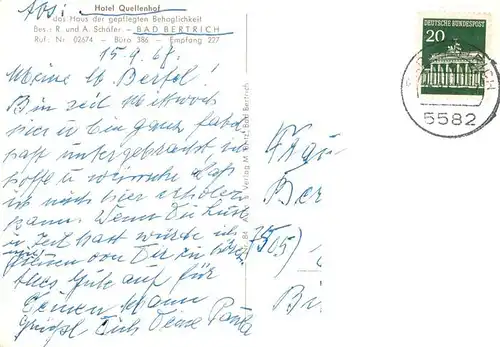 Abs:
Hotel Quellenhof
das Haus der gepflegten Behaglichkeit
Bes.: R. und A. Schäfer - BAD BERTRICH
Ruf: Nr. 02674 - Büro 386 - Empfang 227
15.9.69.
Meine lb. Bertel!
Bin seit Mittwoch
hier u. bin ganz fabel
haft untergebracht ich
hoffe u. wünsche daß
ich mich hier erholen
kann. Wenn Du Lust
u. Zeit hast würde ich
mich freuen von Dir zu hören
alles Gute auf für
Deinen Mann
grüßt Dich Deine Paula
Verlag M. Bad Bertrich
DEUTSCHE BUNDESPOST
20
5582
Ber